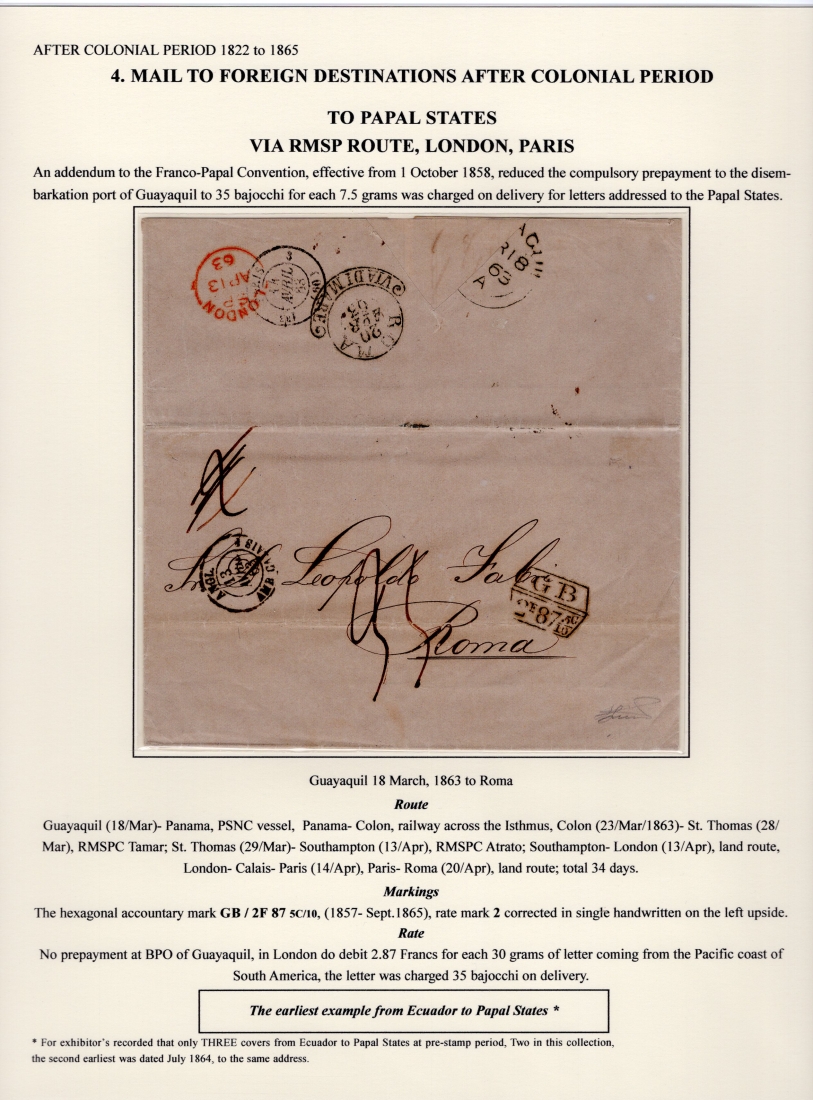 AFTER COLONIAL PERIOD 1822 to 1865
4. MAIL TO FOREIGN DESTINATIONS AFTER COLONIAL PERIOD
TO PAPAL STATES
VIA RMSP ROUTE, LONDON, PARIS
An addendum to the Franco-Papal Convention, effective from 1 October 1858, reduced the compulsory prepayment to the disem-
barkation port of Guayaquil to 35 bajocchi for each 7.5 grams was charged on delivery for letters addressed to the Papal States.
63
AP 13
LONDON
3
AVRIL
63
VIA DI MARE
ROMA
20
63
R 18
63
A
Leopoldo Fabri
Roma
13
AMB. CALAIS
GB
2F 87 5C/10
Guayaquil 18 March, 1863 to Roma
Route
Guayaquil (18/Mar)- Panama, PSNC vessel, Panama- Colon, railway across the Isthmus, Colon (23/Mar/1863)- St. Thomas (28/
Mar), RMSPC Tamar; St. Thomas (29/Mar)- Southampton (13/Apr), RMSPC Atrato; Southampton- London (13/Apr), land route,
London- Calais- Paris (14/Apr), Paris- Roma (20/Apr), land route; total 34 days.
Markings
The hexagonal accountary mark GB / 2F 87 5C/10, (1857- Sept.1865), rate mark 2 corrected in single handwritten on the left upside.
Rate
No prepayment at BPO of Guayaquil, in London do debit 2.87 Francs for each 30 grams of letter coming from the Pacific coast of
South America, the letter was charged 35 bajocchi on delivery.
The earliest example from Ecuador to Papal States *
* For exhibitor's recorded that only THREE covers from Ecuador to Papal States at pre-stamp period, Two in this collection,
the second earliest was dated July 1864, to the same address.